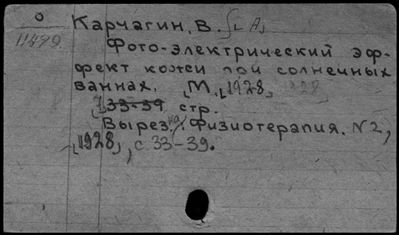 0
11479
Карчагин, В. [А,
Фото-электрический эф-
фект кожи при солнечных
ваннах. [М. [1928,
33-39 стр.
Вырезка: Физиотерапия. N 2,
[1928], с 33-39.